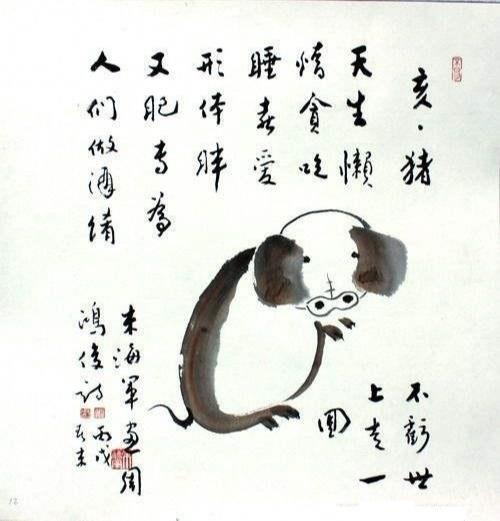 亥·猪
天生懒
惰贪吃
睡喜爱
形体胖
又肥专為
人们做酒
不虧世
上走一
海軍画周
鸿俊诗
丙戌
12